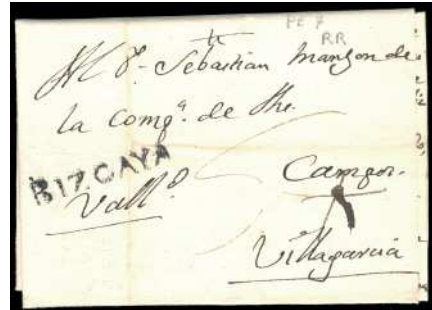 PE 7
RR
Al P.e Sebastian Manzon de
la Comp.a de Jhs.
BIZCAYA
Vall.d
Campos.
Villagarcia